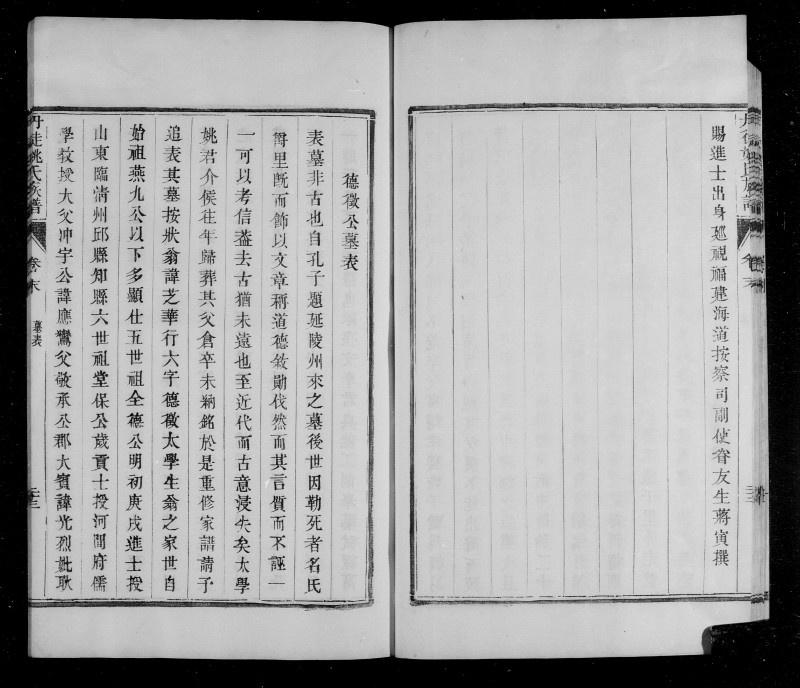 賜進士出身廵視福建海道按察司副使眷友生蔣寅撰
德徵公墓表
表墓非古也自孔子題延陵州來之墓後世因勒死者名氏
爵里旣而飾以文章稱道德敘勛伐然而其言質而不誣一
一可以考信葢去古猶未遠也至近代而古意浸失矣太學
姚君介侯往年歸葬其父倉卒未勒銘於是重修家譜請予
追表其墓按狀翁諱芝華行六字德徵太學生翁之家世自
始祖燕九公以下多顯仕五世祖全德公明初庚戌進士授
山東臨淸州邱縣知縣六世祖堂保公歲貢士授河間府儒
學敎授大父冲宇公諱應鸞父敬承公郡大賓諱光烈妣耿
丹徒姚氏族譜
卷末
墓表